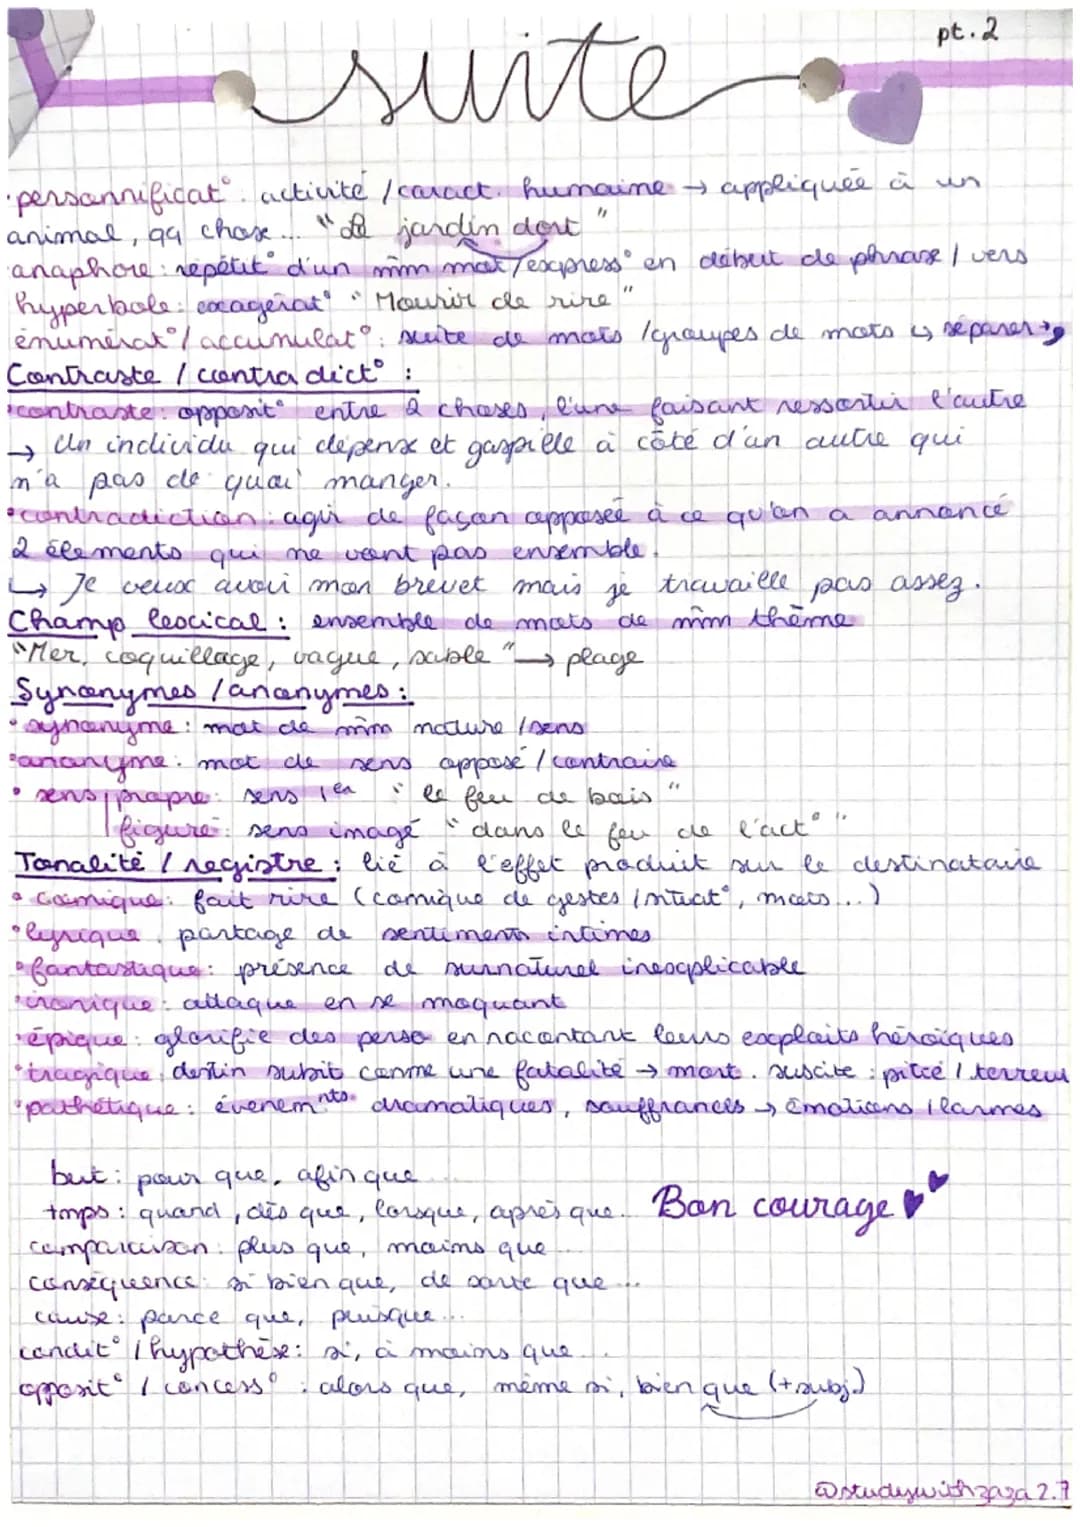 pt.2
suite
·personnificat°: activité /caract. humaine → appliquée à un
animal, qq chose... "Le jardin dort"
·anaphore: répétit° d'un mm mot/express° en début de phrase / vers
hyperbole: exagérat° "Mourir de rire"
énumérat°/accumulat°: suite de mots /groupes de mots ↳ séparer → ,
Contraste / contradict° :
·contraste: opposit° entre 2 choses, l'une faisant ressortir l'autre
→ Un individu qui dépense et gaspille à côté d'un autre qui
n'a pas de quoi manger.
·contradiction: agir de façon opposée à ce qu'on a annoncé
2 élements qui ne vont pas ensemble.
↳ Je veux avoir mon brevet mais je travaille pas assez.
Champ lexical : ensemble de mots de mm thème
"Mer, coquillage, vague, sable" → plage
Synonymes / anonymes :
·synonyme: mot de mm nature /sens
·anonyme: mot de sens opposé / contraire
·sens propre: sens 1er "le feu de bois"
figuré: sens imagé "dans le feu de l'act°"
Tonalité / registre : lié à l'effet produit sur le destinataire
·comique: fait rire (comique de gestes /situat°, mots...)
·lyrique: partage de sentiments intimes
·fantastique: présence de surnaturel inexplicable
·ironique: attaque en se moquant
·épique: glorifie des perso en racontant leurs exploits héroïques
·tragique: destin subit comme une fatalité → mort. suscite : pitié / terreur
·pathétique: événemnts dramatiques, souffrances → émotions /larmes
but: pour que, afin que...
tmps: quand, dès que, lorsque, après que... Bon courage
comparaison: plus que, moins que...
conséquence: si bien que, de sorte que...
cause: parce que, puisque...
condit° / hypothèse: si, à moins que...
opposit° / concess°: alors que, même si, bien que (+subj.)
@studywithzaza2.7